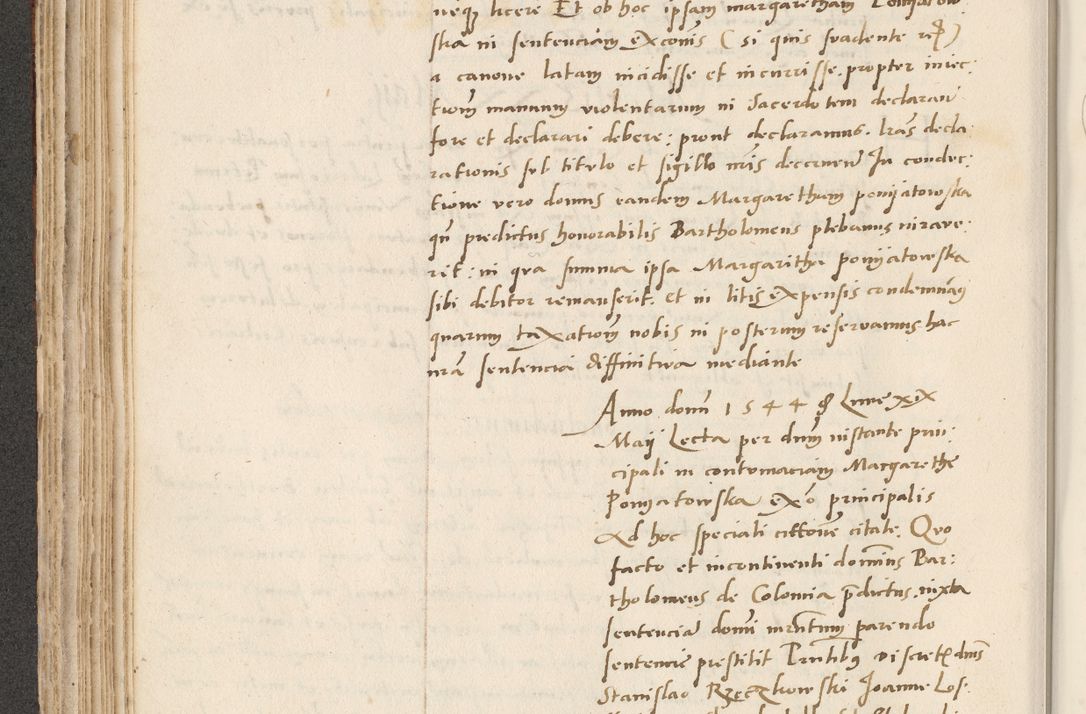 neqz licere Et ob hoc ipsam margaretham Poniatow
ska in sentenciam exconis (si quis suadente etc)
a canone latam incidisse et incurrisse, propter iniec:
tiom manuum violentarum in Sacerdotem declaran
fore et declarari debere: prout declaramus. lras decla
rationis sub titulo et sigillo nris decernen In condec:
tione vero domus eandem Margaretham ponijatowska
qn predictus honorabilis Bartholomeus plebanus iurave:
rit: in qua summa ipsa Margarithe ponijatowska
sibi debitor remanserit. et in litis expensis condemnaq
quarum taxationem nobis in posterum reservamus hac
nra sentencia diffinitiva mediante
Anno domi 1544 Lune xix
Maij Lecta per dnm instante prin:
cipali in contumaciam Margarethe
Poniatowska exo principalis
Ad hoc speciali cittione citate. Quo
facto et incontinenti dominus Bar:
tholomeus de Colonia pdictus, iuxta
sentencia domi iurntum parendo
sentencie prestitit Prntibus Discretis dnis
Stanislao Rzeczkowski Joanne Los: